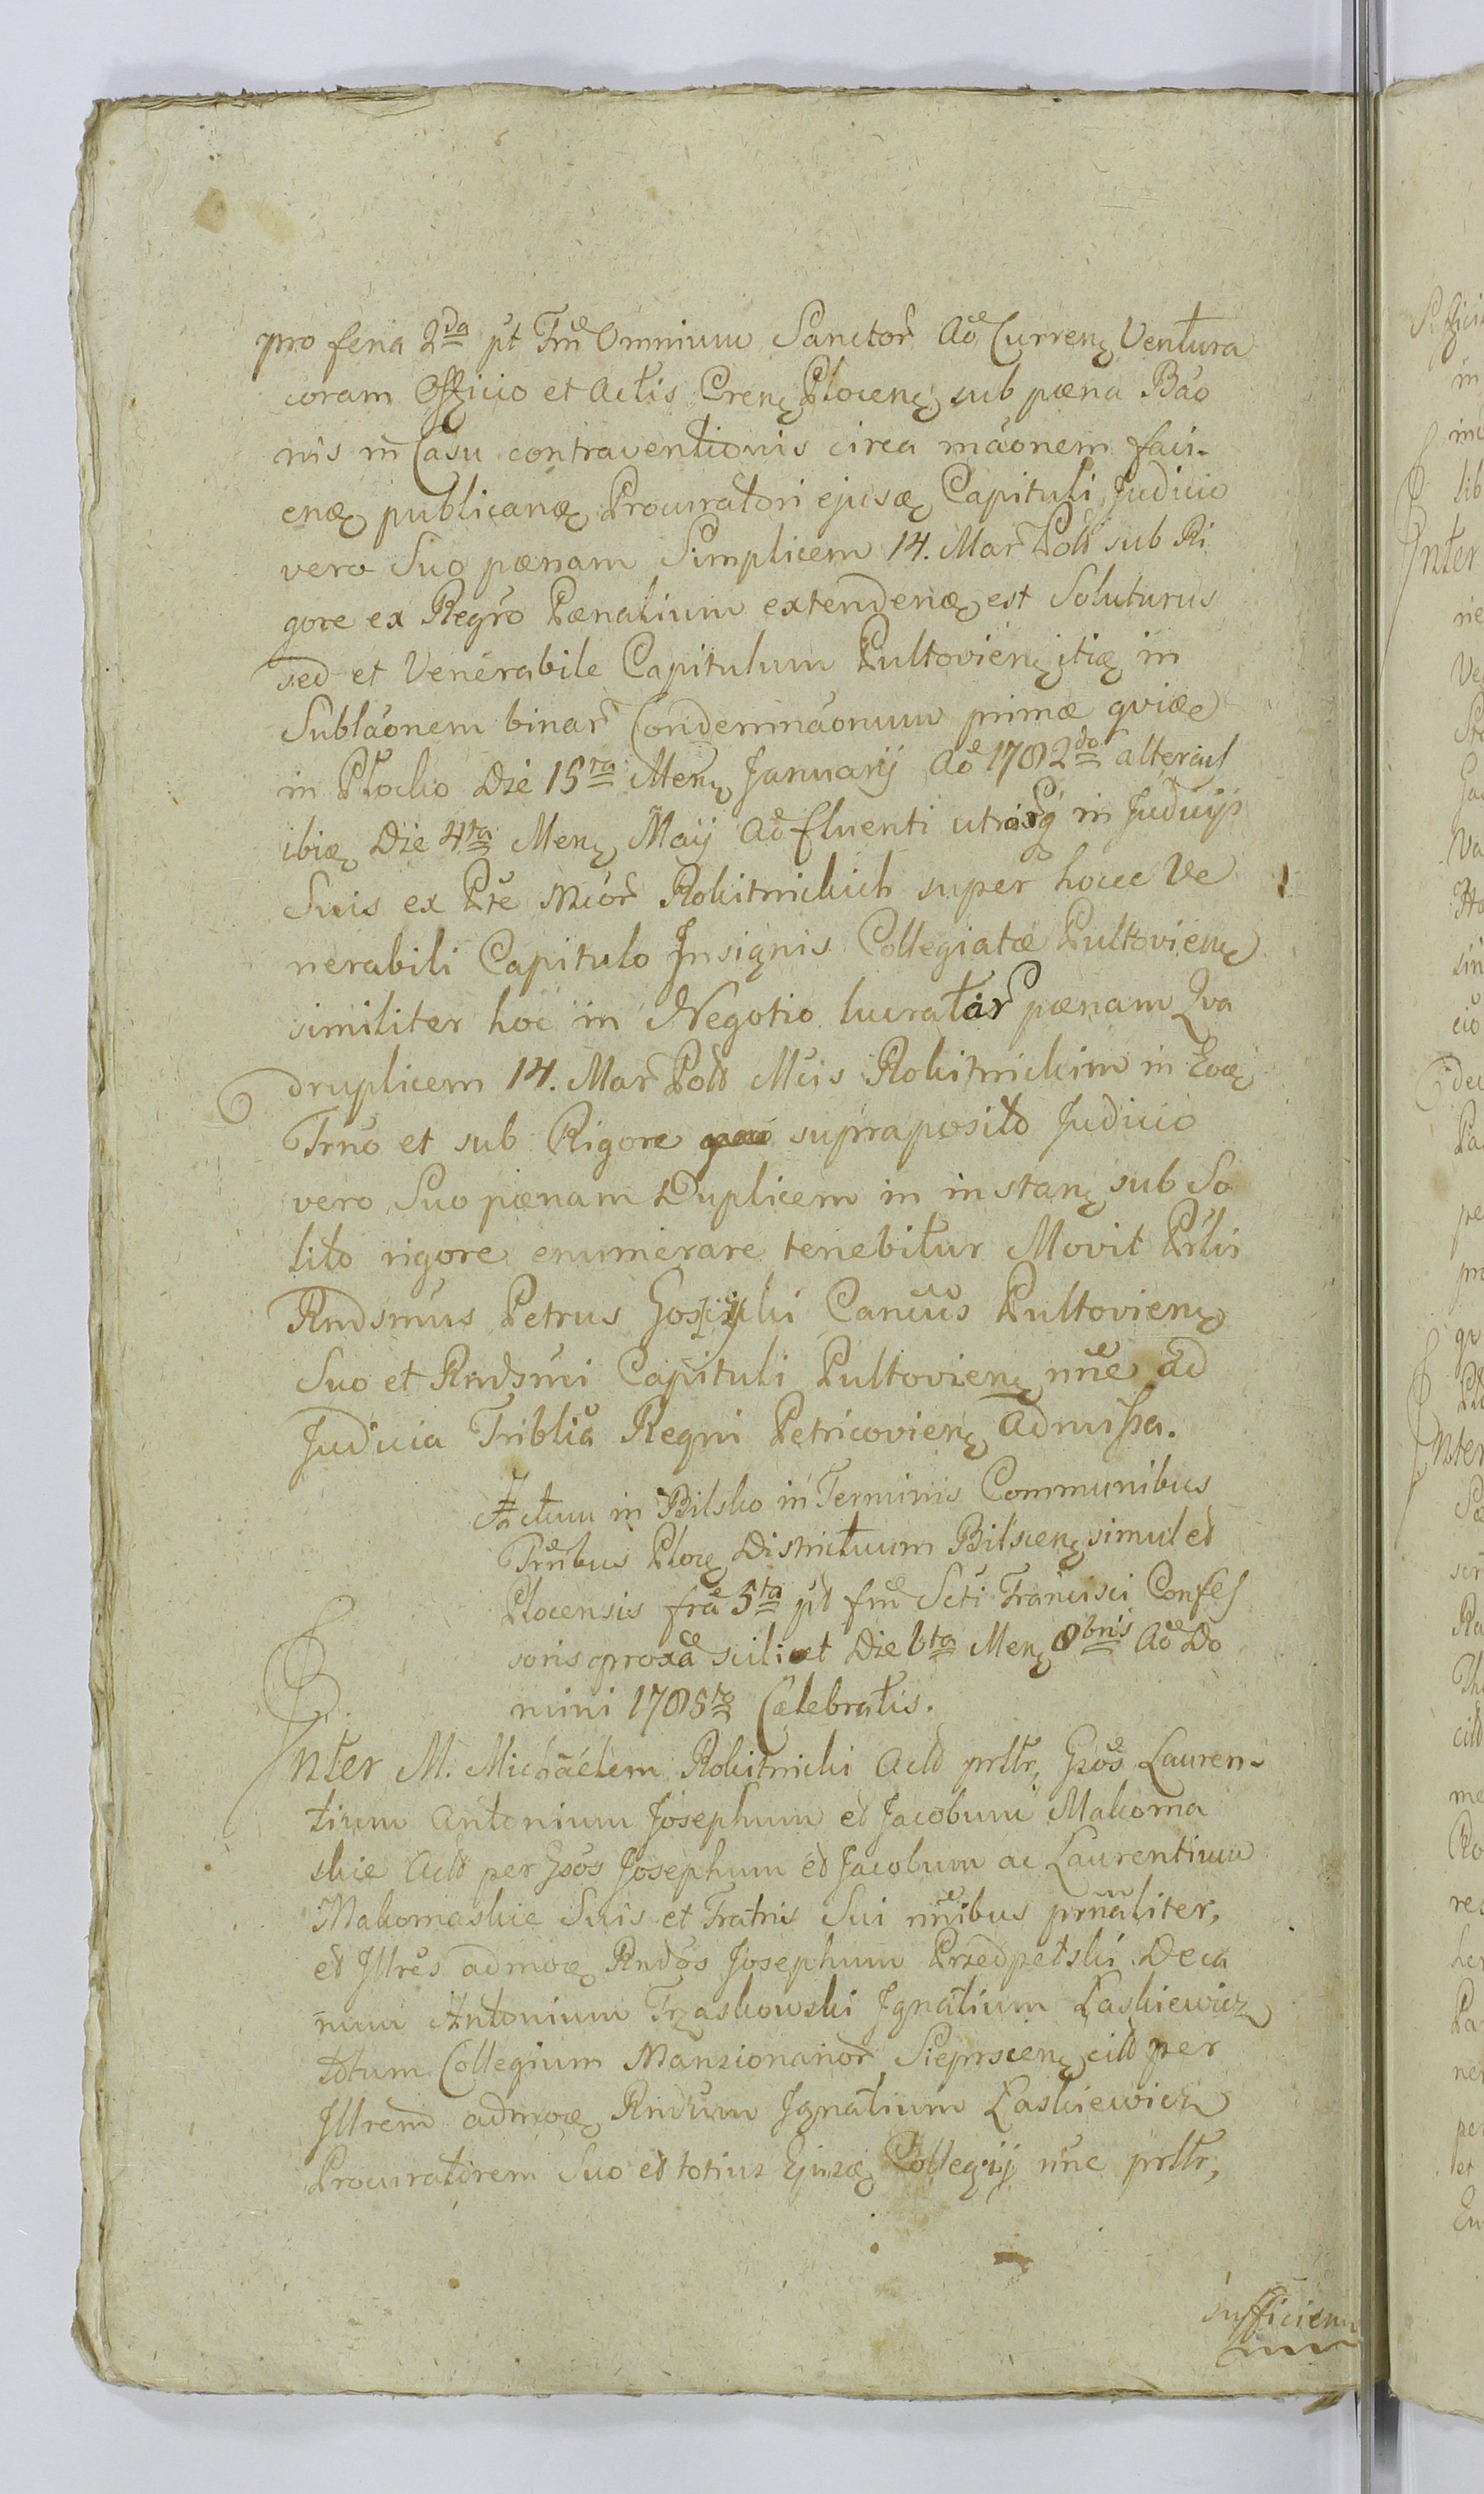 pro feria 2da pt Fm Omnium Sanctor Ao Curren Ventura
coram Officio et Actis Cren Plocen sub pæna Bao
nis in Casu contraventionis circa mãonem faci-
enæ publicanæ Procuratori ejusæ Capituli Judicio
vero Suo pænam Simplicem 14. Mar Pold sub Ri
gore ex Regro Pænalium extendenæ est Soluturus
sed et Venerabile Capitulum Pultovien itiæ in
Sublãonem binar Condemnãonum primæ qviæ
in Plocko Die 15ta Men Januarij Ao 1782do alterius
ibiæ Die 4ta Men Maij Ao fluenti utrasq in Judicijs
Suis ex Pte Mcor Rokitnickich super hocce Ve
nerabili Capitulo Insignis Collegiatæ Pultovien
similiter hoc in Negotio lucratar pænam Qva
druplicem 14. Mar Pold Mcis Rokitnickim in Eoæ
Trno et sub Rigore supraposito Judicio
vero Suo pænam Duplicem in instan sub So
lito rigore enumerare tenebitur Movit Prlis
Rndsmus Petrus Cancus Pultovien
Suo et Rndsmi Capituli Pultovien nne ad
Judicia Triblia Regni Petricovien admissa.
Actum in Bilsko in Terminis Communibus
Trnbus Ploc Districtuum Bilscen simul et
Plocensis fra 5ta pt fm Scti Francisci Confes
soris proxa scilicet Die 6ta Men 8bris Ao Do
mini 1785to Celebratis.
Inter M. Michaelem Rokitnicki Actd prltr, Gsos Lauren-
tium Antonium Josephum et Jacobum Makoma
skie Actd per Gsos Josephum et Jacobum ac Laurentium
Makomaskie Suis et Fratris Sui nnibus prnaliter,
et Jllres admoæ Rndos Josephum Przedpełski Deca
num Antonium Trzaskowski Jgnatium Łaskiewicz
totum Collegium Mansionarior Sieprscen citd per
Jllrem admoæ Rndum Jgnatium Łaskiewicz
Procuratorem Suo et totius Ejusæ Collegij nne prltr,
sufficien